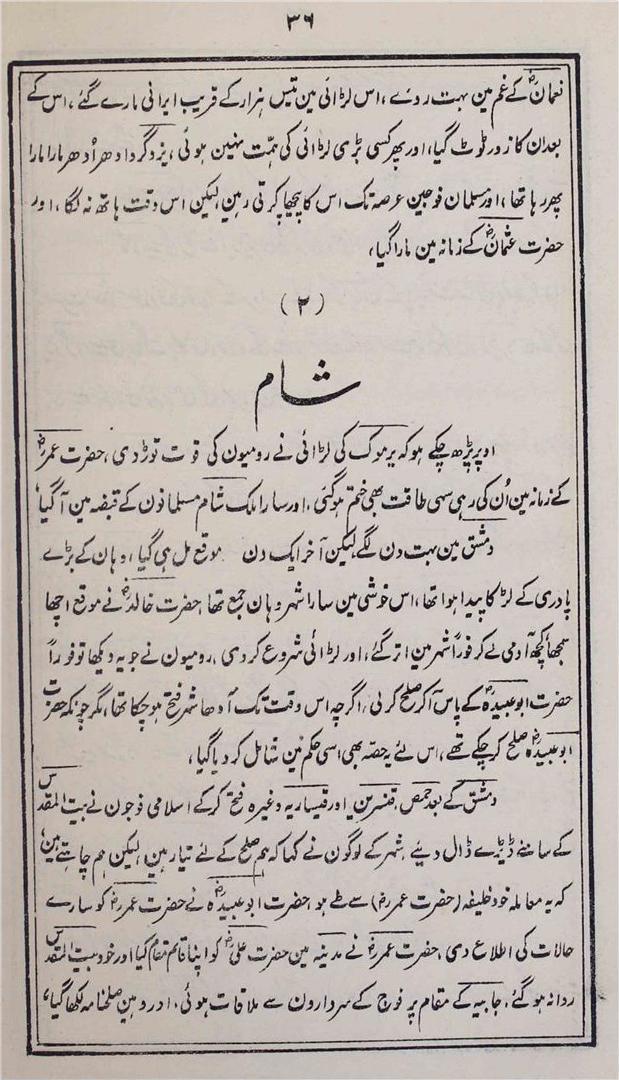 ۳۶
نعمانؓ کے غم مین بہت روئے، اس لڑائی مین تیس ہزار کے قریب ایرانی مارے گئے، اس کے
بعد ان کا زور ٹوٹ گیا، اور پھر کسی بڑی لڑائی کی ہمّت نہین ہوئی، یزدگرد ادھر اُدھر مارا مارا
پھر رہا تھا، اور مسلمان فوجین عرصہ تک اس کا پیچھا کرتی رہین لیکن اس وقت ہاتھ نہ لگا، اور
حضرت عثمانؓ کے زمانہ مین مارا گیا،
(۲)
شام
اوپر پڑھ چکے ہو کہ یرموک کی لڑائی نے رومیون کی قوت توڑ دی، حضرت عمرؓ
کے زمانہ مین اُن کی رہی سہی طاقت بھی ختم ہو گئی، اور سارا ملک شام مسلمانون کے قبضہ مین آ گیا،
دمشق مین بہت دن لگے لیکن آخر ایک دن موقع مل ہی گیا، وہان کے بڑے
پادری کے لڑکا پیدا ہوا تھا، اس خوشی مین سارا شہر وہان جمع تھا، حضرت خالدؓ نے موقع اچھا
سمجھا کچھ آدمی لے کر فوراً شہر مین اتر گئے، اور لڑائی شروع کر دی، رومیون نے جو یہ دیکھا تو فوراً
حضرت ابو عبیدہؓ کے پاس آ کر صلح کر لی، اگرچہ اس وقت تک آدھا شہر فتح ہو چکا تھا، مگر چونکہ حضرت
ابو عبیدہؓ صلح کر چکے تھے، اس لئے یہ حصہ بھی اسی حکم مین شامل کر دیا گیا،
دمشق کے بعد حمص، قنسرین، اور قیساریہ وغیرہ فتح کر کے اسلامی فوجون نے بیت المقدس
کے سامنے ڈیرے ڈال دیئے، شہر کے لوگون نے کہا کہ ہم صلح کے لئے تیار ہین، لیکن ہم چاہتے ہین،
کہ یہ معاملہ خود خلیفہ (حضرت عمرؓ) سے طے ہو، حضرت ابو عبیدہؓ نے حضرت عمرؓ کو سارے
حالات کی اطلاع دی، حضرت عمرؓ نے مدینہ مین حضرت علیؓ کو اپنا قائم مقام کیا اور خود بیت المقدس
روانہ ہو گئے، جابیہ کے مقام پر فوج کے سردارون سے ملاقات ہوئی، اور وہین صلحنامہ لکھا گیا،